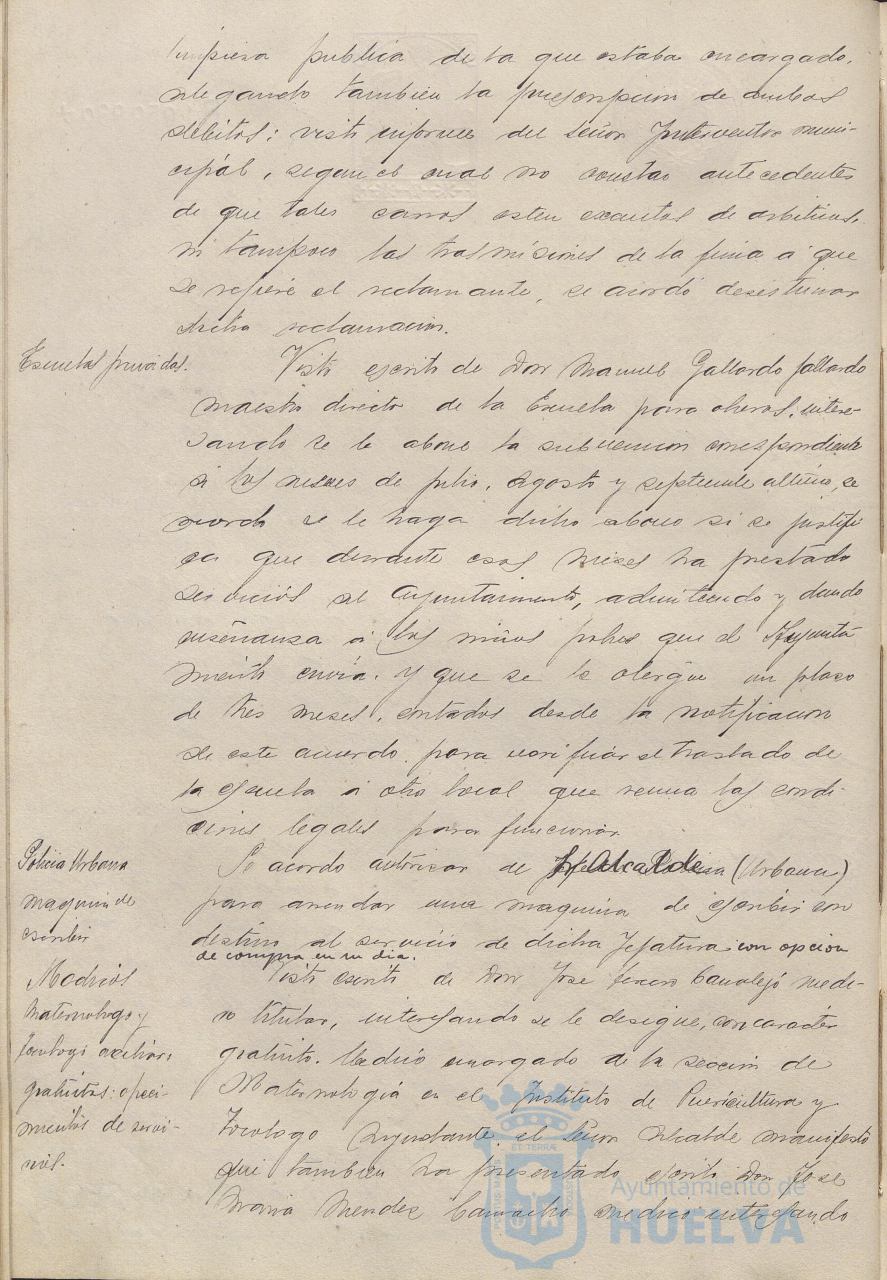 limpiesa publica de la que estaba encargado,
alegando tambien la prescripcion de ambos
debitos; visto informe del señor Interventor muni-
cipal, segun el cual no constan antecedentes
de que tales carros esten exentos de arbitrios,
ni tampoco las trasmisiones de la finca a que
se refiere el reclamante, se acordó desestimar
dicha reclamacion.
Escuelas privadas.
Visto escrito de Don Manuel Gallardo Gallardo
maestro director de la Escuela para obreros, intere-
sando se le abone la subvencion correspondiente
a los meses de julio, agosto y septiembre ultimo, se
acordo se le haga dicho abono si se justifi
ca que durante esos meses ha prestado
servicios al Ayuntamiento, admitiendo y dando
enseñanza a los niños pobres que el Ayunta
miento envia. y que se le otorgue un plazo
de tres meses, contados desde la notificacion
de este acuerdo para verificar el traslado de
la escuela a otro local que reuna las condi
ciones legales para funcionar.
Policia Urbana
maquina de
escribir
Se acordo autorizar de Sr Alcalde (Urbana)
para arrendar una maquina de escribir con
destino al servicio de dicha Jefatura con opcion
de compra en su dia.
Medicos
Maternologo y
Tocologo auxiliar
gratuitos: ofreci-
mientos de servi-
cios.
Visto escrito de Don Jose medi-
co titular, interesando se le designe, con caracter
gratuito. Medico encargado de la seccion de
Maternologia en el Instituto de Puericultura y
Tocologo Ayudante, el señor Alcalde manifesto
que tambien ha presentado escrito Don Jose
Maria Mendez Camacho medico interesando
Ayuntamiento de
HUELVA